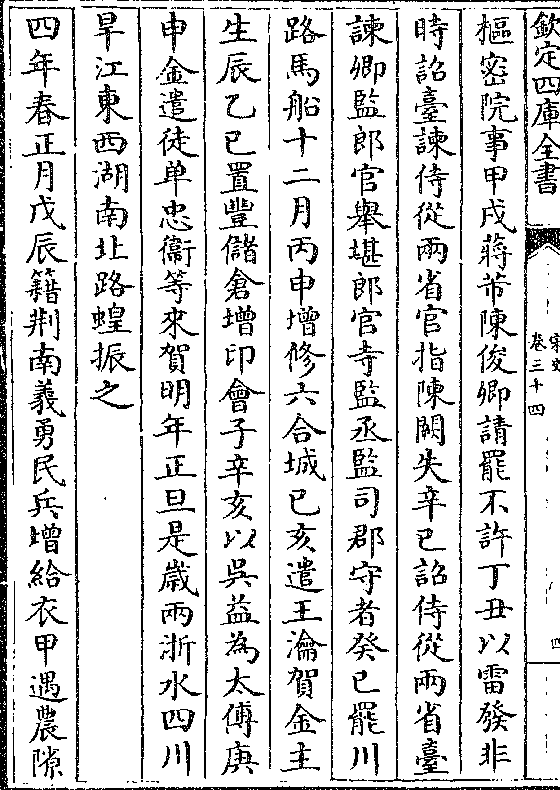 欽定四庫全書
宋史
卷三十四
四
樞密院事甲戌蔣芾陳俊卿請罷不許丁丑以雷發非
時詔臺諫侍從兩省官指陳闕失辛巳詔侍從兩省臺
諫卿監郎官舉堪郎官寺監丞監司郡守者癸巳罷川
路馬船十二月丙申增修六合城已亥遣王瀹賀金主
生辰乙已置豐儲倉增印會子辛亥以吳益為太傅庚
申金遣徒单忠衛等來賀明年正旦是歲兩浙水四川
旱江東西湖南北路蝗振之
四年春正月戊辰籍荆南義勇民兵增給衣甲遇農隙